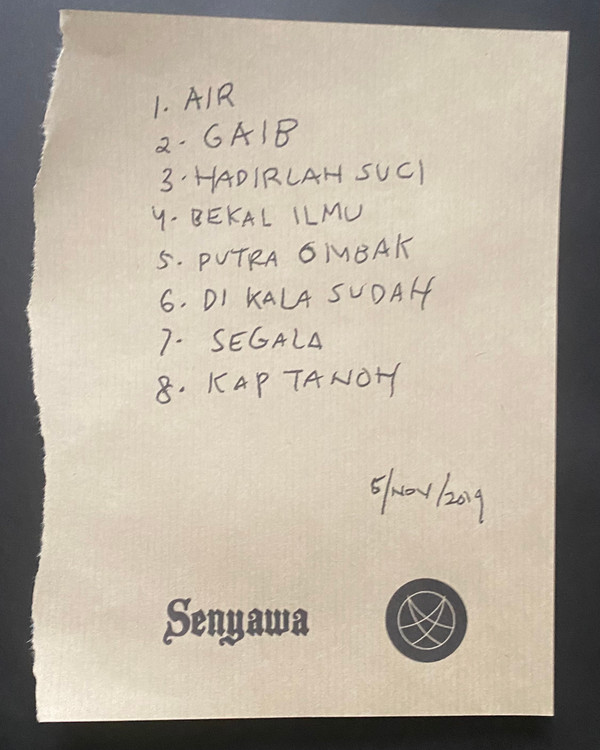 1. AIR
2. GAIB
3. HADIRLAH SUCI
4. BEKAL ILMU
5. PUTRA OMBAK
6. DI KALA SUDAH
7. SEGALA
8. KAP TANOH
5/NOV/2019
Senyawa